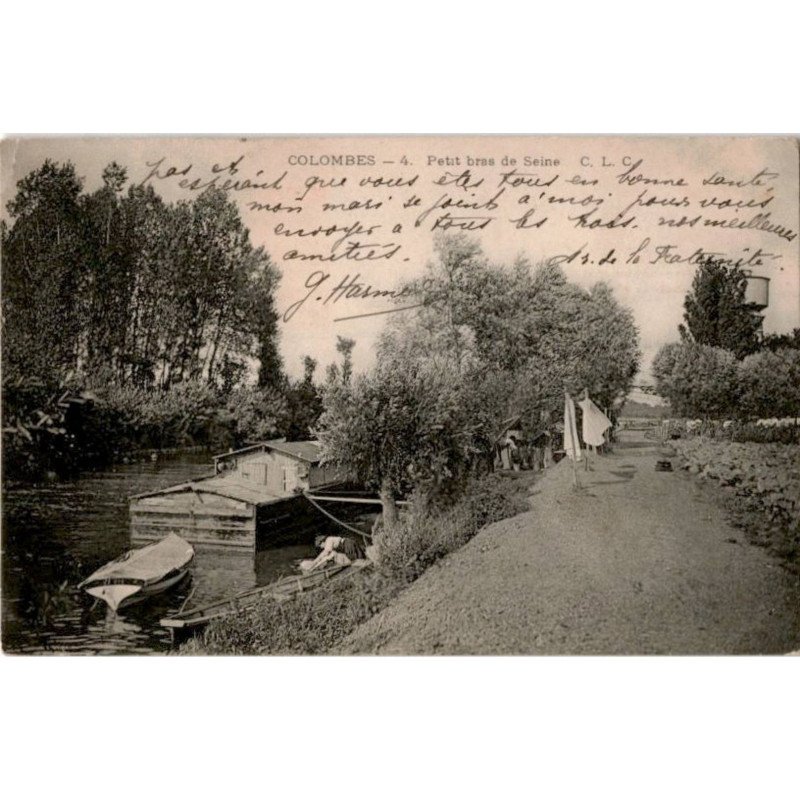 COLOMBES — 4. Petit bras de Seine C. L. C.
pas et
espérant que vous êtes tous en bonne santé,
mon mari se joint à moi pour vous
envoyer à tous les trois, nos meilleures
amitiés. Ar. de la Fraternité.
G. Harm